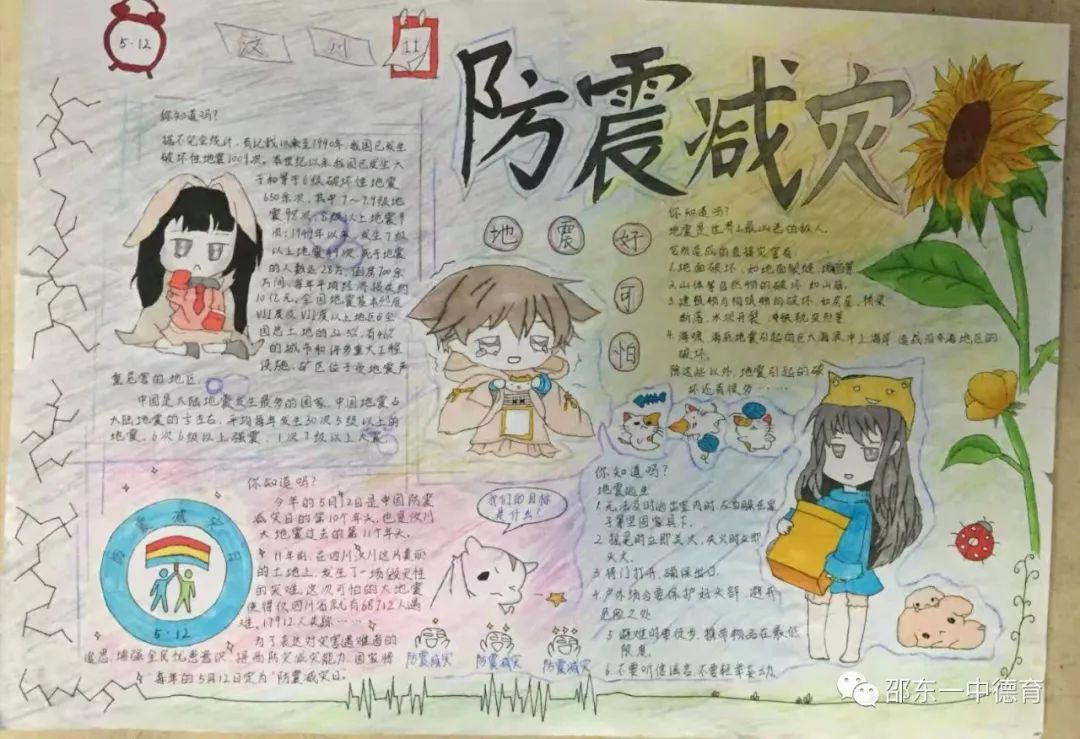 5·12
汶川
11
防震减灾
你知道吗?
据不完全统计,有记载以来至1990年,我国已发生
破坏性地震1009次。本世纪以来我国已发生大
于和等于6级破坏性地震
650余次,其中7~7.9级地
震98次,8级以上地震9
次;1949年以来,发生7级
以上地震49次,死于地震
的人数达28万,倒房700余
万间,每年平均经济损失约
10亿元。全国地震基本烈度
VII度及VII度以上地区占全
国总土地的32.5%,有46%
的城市和许多重大工程
设施、矿区位于受地震严
重危害的地区。
中国是大陆地震发生最多的国家,中国地震占
大陆地震的
平均每年发生30次5级以上的
地震,6次6级以上强震,1次7级以上大震
地震好
可
怕
你知道吗?
地震是世界上最凶恶的敌人,
它所造成的直接灾害有:
1.地面破坏,如地面裂缝、
2.山体等自然物的破坏,如山崩。
3.建筑物与构筑物的破坏,如房屋、桥梁
断落,水坝开裂、铁轨变形等
4.海啸、海底地震引起的巨大海浪冲上海岸,造成沿海地区的
破坏。
除这些以外,地震引起的破
坏还有很多……
你知道吗?
今年的5月12日是中国防震
减灾日的第10个年头,也是汶川
大地震过去的第11个年头。
11年前,在四川汶川这片美丽
的土地上,发生了一场毁灭性
的灾难。这次可怕的大地震
使得仅四川省就有68712人遇
难,17912人失踪……
为了表达对灾害遇难者的
追思,增强全民忧患意识,提高防灾减灾能力,国家将
每年的5月12日定为“防震减灾日。
震减灾
防
日
5·12
我们的目标
是什么?
防震减灾
防震减灾
防震减灾
你知道吗?
地震逃生
1.无法及时逃出室内时,应当躲在桌
子等坚固家具下。
2.摇晃时立即关火,失火时立即
灭火。
3.将门打开,确保出口。
4.户外场合要保护好头部,避开
危险之处
5.避难时要徒步,携带物品在最低
限度。
6.不要听信谣言,不要轻举妄动
邵东一中德育